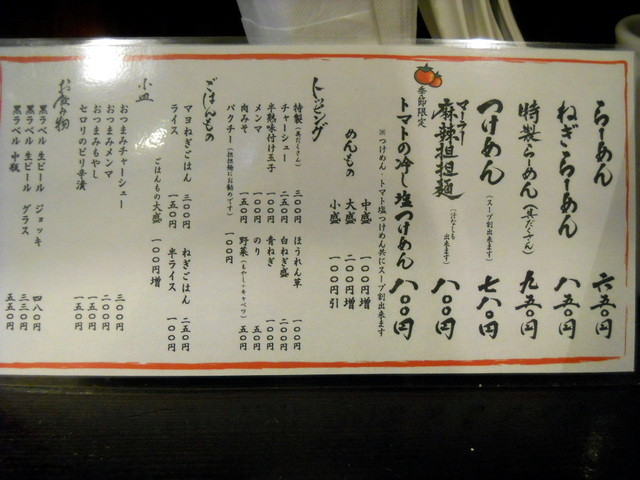 らーめん 六五〇円
ねぎらーめん 八五〇円
特製らーめん（具だくさん） 九五〇円
つけめん（スープ割出来ます） 七八〇円
マーラー
麻辣担担麺（汁なしも出来ます） 八〇〇円
季節限定
トマトの冷し塩つけめん 八〇〇円
※つけめん・トマト塩つけめん共にスープ割出来ます
めんもの 中盛 一〇〇円増
大盛 二〇〇円増
小盛 一〇〇円引
トッピング
特製（具だくさん） 三〇〇円 ほうれん草 一〇〇円
チャーシュー 二五〇円 白ねぎ盛 二〇〇円
半熟味付け玉子 一〇〇円 青ねぎ 一〇〇円
メンマ 一〇〇円 のり 五〇円
肉みそ 一五〇円 野菜（もやし・キャベツ） 五〇円
パクチー（担担麺にお勧めです） 一〇〇円
ごはんもの
マヨねぎごはん 三〇〇円 ねぎごはん 二五〇円
ライス 一五〇円 半ライス 一〇〇円
ごはんもの大盛 一〇〇円増
小皿
おつまみチャーシュー 三〇〇円
おつまみメンマ 二〇〇円
おつまみもやし 一五〇円
セロリのピリ辛漬 一五〇円
お飲み物
黒ラベル 生ビール ジョッキ 四八〇円
黒ラベル 生ビール グラス 三三〇円
黒ラベル 中瓶 五五〇円